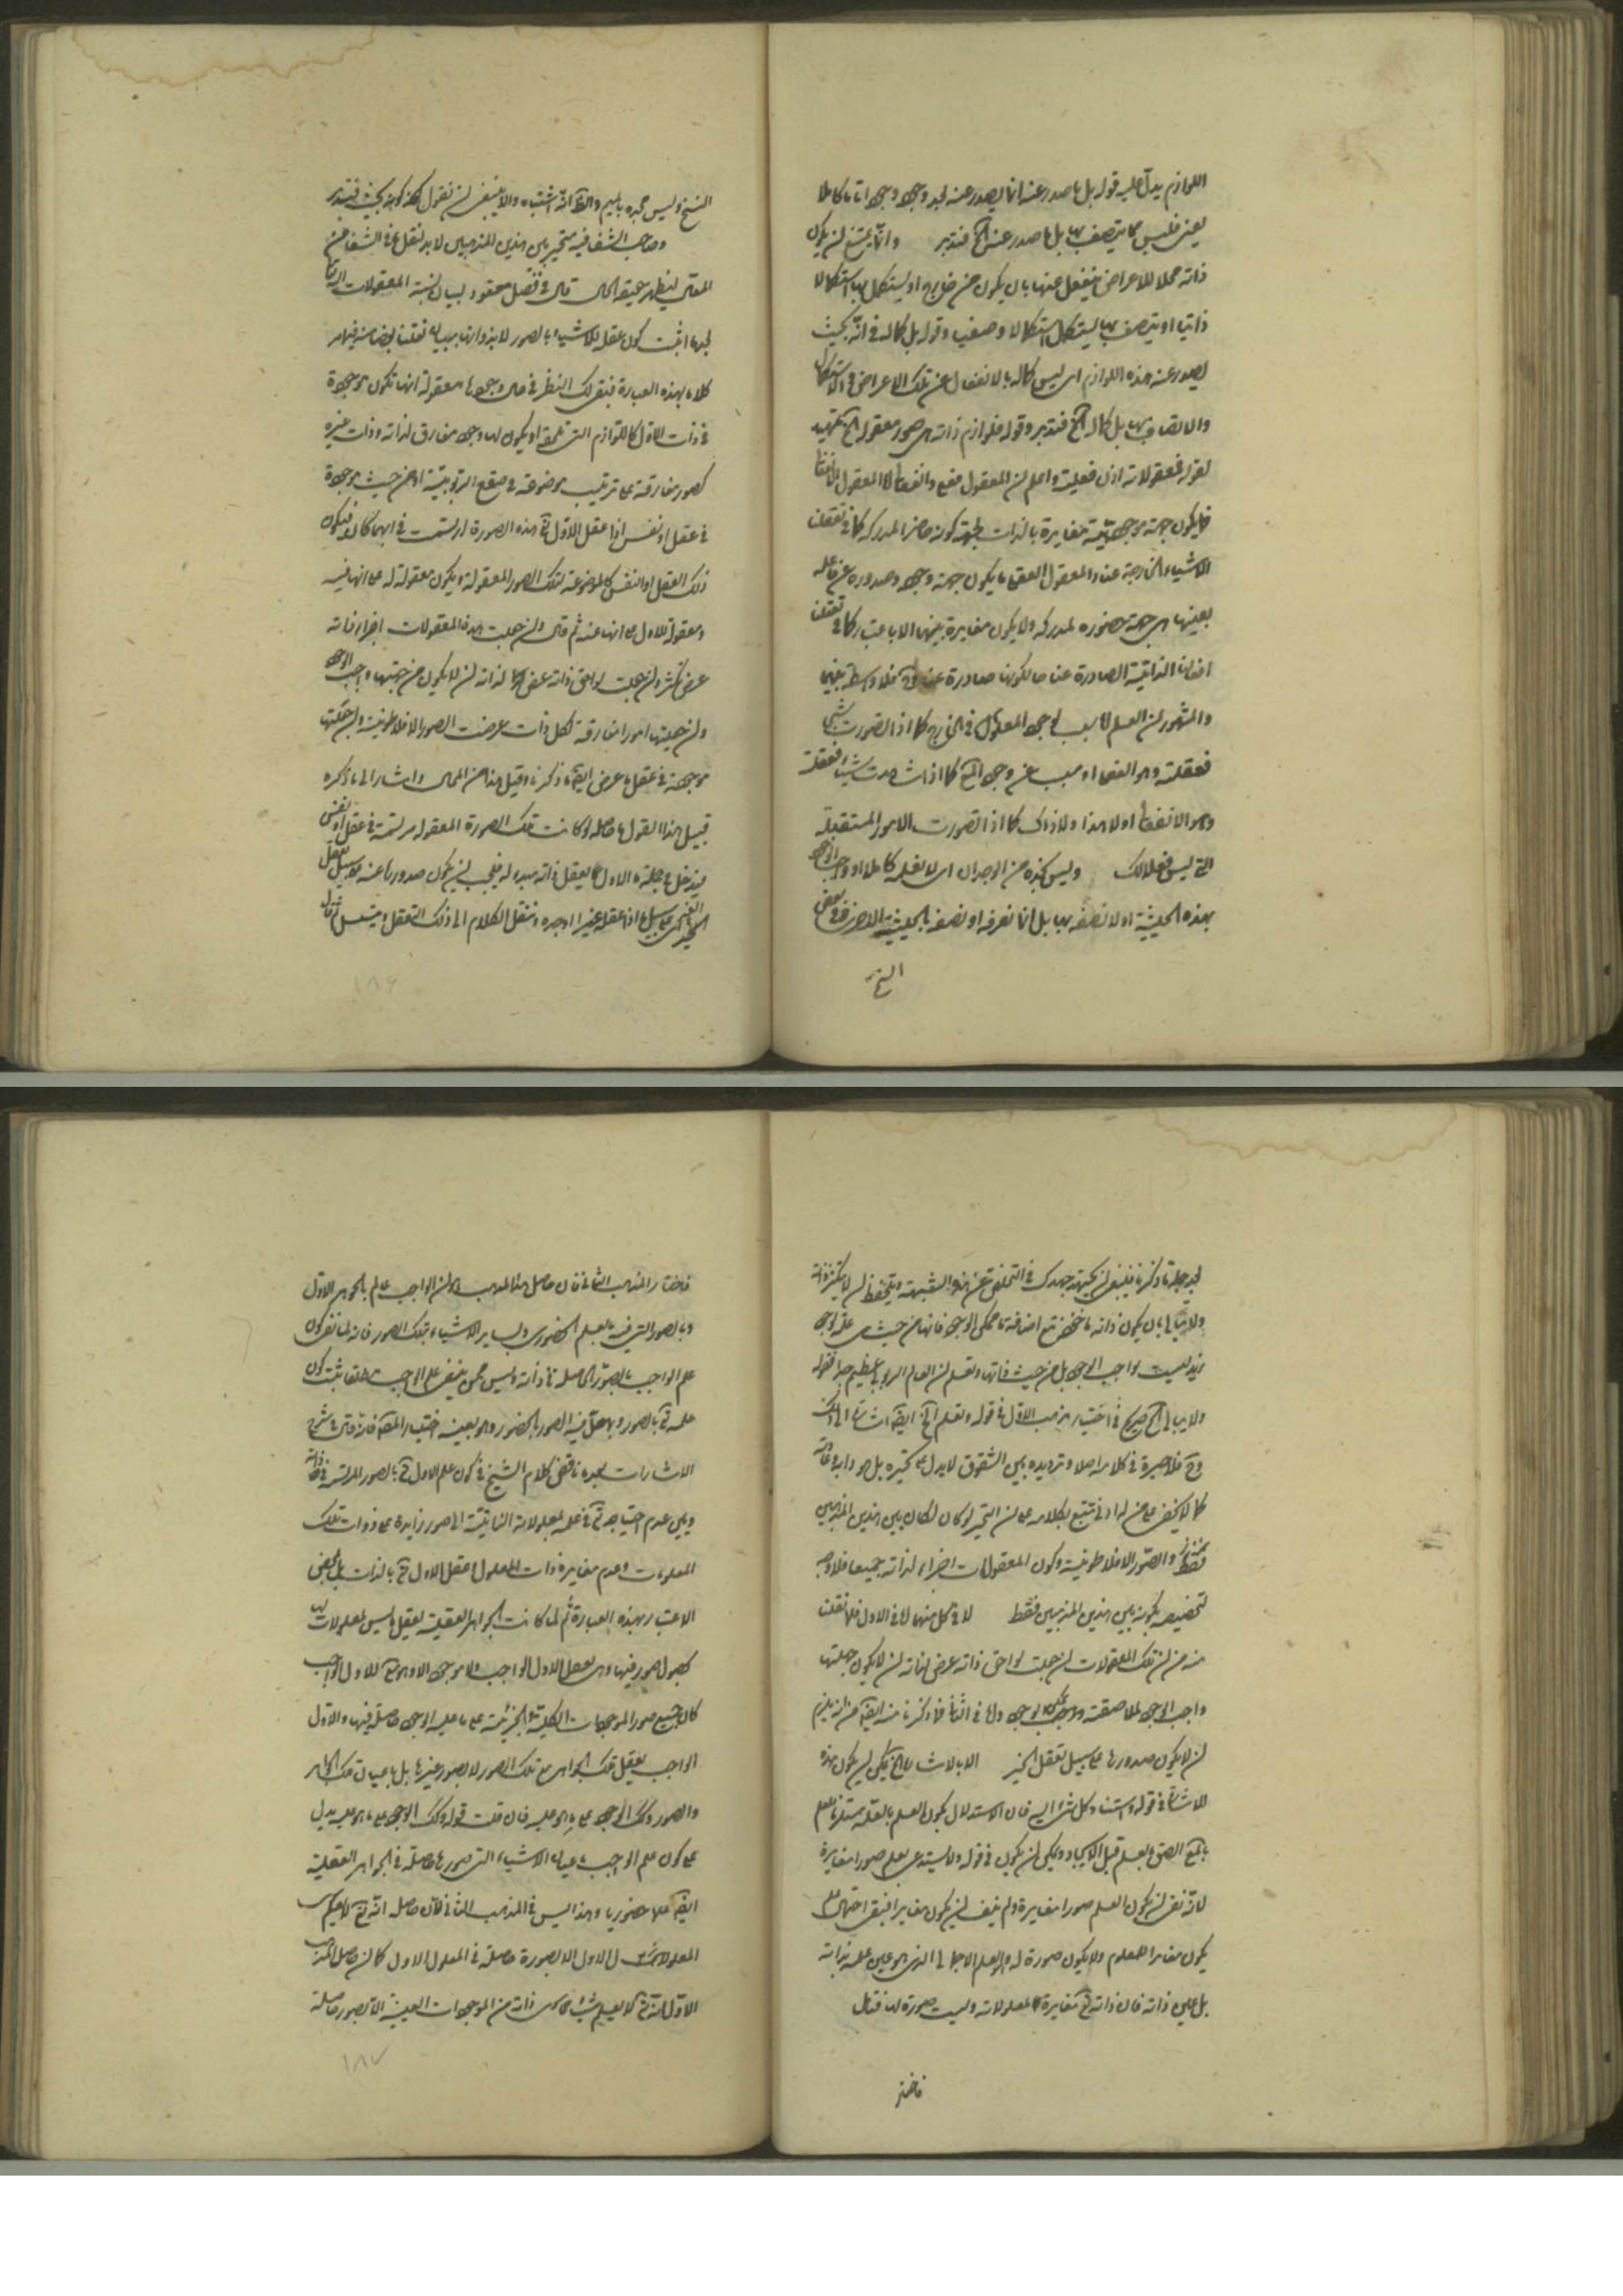 اللوازم يدل عليه قوله بل ما صدر عنه انما يصدر عنه بعد وجوده وجودا تاما كاملا
يعنى فليس مما يتصف بها بل ما صدر عنه الخ فتدبر وانما يمتنع ان يكون
ذاته محلا للاعراض ينفعل عنها بان يكون من خارج او يستكمل بها استكمالا
ذاتيا او يتصف بها ليستكمل استكمالا وصفيا وقوله بل كماله فى انه بحيث
يصدر عنه هذه اللوازم اى ليس كماله بالانفعال عن تلك الاعراض والاستكمال
والاتصاف بها بل كماله الخ فتدبر وقوله فلوازم ذاته هى صور معقولة الخ تمهيد
لقوله فمعقولاته اذن فعلية واعلم ان المعقول فعلى وانفعالى والمعقول الانفعالى
ما يكون جهة موجوديته مغايرة بالذات لجهة كونه حاضرا لمدركه كما فى تعقلنا
الاشياء الخارجة عنا والمعقول الفعلى ما يكون جهة وجوده وصدوره عن فاعله
بعينها هى جهة حضوره لمدركه ولا يكون مغايرة بينهما الا باعتبار كما فى تعقلنا
افعالنا الذاتية الصادرة عنا مالكونها صادرة عنا بلا واسطة بيننا
والمشهور ان العلم اما سبب لوجود المعلوم فى الخارج كما اذا تصورت شيئا
ففعلته وهو الفعلى او مسبب عن وجود الخ كما اذا شاهدت شيئا فعقلته
وهو الانفعالى او لا هذا ولا ذاك كما اذا تصورت الامور المستقبلة
التى ليس فعلا لك وليس كذلك من الوجدان اى لا نعلمه كاملا او واجب الوجود
بهذه الحيثية او لا نصفه بها بل انا نعرفه او نصفه بالحيثية الاخرى فى بعض
النسخ
النسخ وليس بجيد والظاهر انه اشتباه والا ينبغى ان نقول لكونه بحيث فتدبر
وصاحب الشفا فيه متحير بين هذين المذهبين لا بد لنقل ما فى الشفا من
المقال ليظهر حقيقة الحال قال فى فصل معقود لبيان نسبة المعقولات اليه تعالى
بعد ما اثبت كون عقله للاشياء بالصور لا بذواتها
كلاما بهذه العبارة فبقى لك النظر فى حال وجودها معقولة انها تكون موجودة
فى ذات الاول كاللوازم التى تلحقه او يكون لها وجود مفارق لذاته وذات غيره
كصور مفارقة على ترتيب موضوعة فى صقع الربوبية او من حيث موجودة
فى عقل او نفس اذا عقل الاول تعالى هذه الصورة ارتسمت فى ايهما كان فيكون
ذلك العقل او النفس كالموضوعة لتلك الصور المعقولة ويكون معقولة له على انها فيه
ومعقولة للاول على انها عنه ثم قال وان جعلت هذه المعقولات اجزاء ذاته
عرض تكثر وان جعلت لواحق ذاته عرض لذاته ان لا يكون من جهتها واجب الوجود
وان جعلتها امورا مفارقة لكل ذات عرضت الصور الافلاطونية وان جعلتها
موجودة فى عقل ما عرض ايضا ما ذكرناه قبل هذا من المحال واشار الى ما ذكره
قبيل هذا القول ما حاصله لو كانت تلك الصورة المعقولة مرتسمة فى عقل او نفس
فيدخل فى جملة ما الاول يعقل ذاته مبدء له فيجب ان يكون صدورها عنه على سبيل تعقل
الخير على سبيل ما اذا عقله خيرا اوجده وننقل الكلام الى ذلك التعقل ويتسلسل ثم قال
١٨٦
بعد جملة ما ذكرنا فينبغى ان تجتهد جهدك فى التخلص عن هذه الشبهة وتتحفظ ان لا يتكثر ذاته
ولا تبالى بان يكون ذاته ماخوذة مع اضافة ما ممكن الوجود فانها من حيث هى علة لوجود
زيد ليست بواجب الوجود بل من حيث ذاتها وتعلم ان العالم الربوبى عظيم جدا فقوله
ولا تبالى الخ صريح فى اختيار مذهب الاول فى قوله وتعلم الخ ايضا اشارة الى ذلك
وح فلا حيرة فى كلامه اصلا وترديده بين الشقوق لا يدل على تحيره بل هو دابه
كما لا يخفى على من له ادنى تتبع بكلامه على ان التحير لو كان لكان بين هذين المذهبين
فقط والصور الافلاطونية وكون المعقولات اجزاء لذاته جميعا فلا وجه
لتخصيصه بكونه بين هذين المذهبين فقط لا فى كل منهما اما فى الاول فلما نقلت
منه من ان تلك المعقولات ان جعلت لواحق ذاته عرض لذاته ان لا يكون جهتها
واجب الوجود لملاصقته ممكن الوجود واما فى الثانى فلما ذكرنا منه ايضا من انه يلزم
ان لا يكون صدورها على سبيل تعقل الخير الا بالاشارة الخ يمكن ان يكون هذه
الاشارة فى قوله واستناد كل شىء اليه فان الاستدلال بكون العلم بالعلة مستلزما للعلم
بالمعلول يعلم قبل الايجاد ويمكن ان يكون فى قوله ولا يستدعى العلم صورا مغايرة
لانه نفى ان يكون العلم صورا مغايرة ولم ينف ان يكون مغايرا فبقى احتمال ان
يكون مغايرا للمعلوم ولا يكون صورة له وهو العلم الاجمالى الذى هو عين علمه بذاته
بل عين ذاته فان ذاته تعالى مغايرة لمعلولاته وليست صورة لها فتامل
فاختار
فاختار المذهب الثانى فان حاصل هذا المذهب هو ان الواجب عالم بالجوهر الاول
وبالصور التى فيه بالعلم الحضورى وبساير الاشياء بتلك الصور فانه لما نفى كون
علم الواجب بالصور الحاصلة فى ذاته وليس ممن ينفى علم الواجب مطلقا يثبت كون
علمه تعالى بالصور وبمحل فيه الصور بالحضور وهو بعينه اختيار المصنف فانه قال فى شرح
الاشارات بعد ما ناقض كلام الشيخ فى كون علم الاول تعالى بالصور المرتسمة فى ذاته
وبين عدم احتياجه تعالى فى علمه بمعلولاته الثابتة الى صور زايدة على ذوات تلك
المعلولات وعدم مغايرة ذات المعلول لعقل الاول تعالى بالذات بل بمحض
الاعتبار بهذه العبارة ثم لما كانت الجواهر العقلية تعقل ما ليس بمعلولات لها
بحصول صور فيها وهى تعقل الاول الواجب ولا موجود الا وهو معلول للاول الواجب
كان جميع صور الموجودات الكلية والجزئية على ما عليه الوجود حاصلة فيها والاول
الواجب يعقل تلك الجواهر مع تلك الصور لا بصور غيرها بل باعيان تلك الجواهر
والصور وكذلك الوجود على ما هو عليه فان قلت قوله وكذلك الوجود على ما هو عليه يدل
على كون علم الواجب باعيان الاشياء التى صورها حاصلة فى الجواهر العقلية
ايضا علما حضوريا وهذا ليس فى المذهب الثانى فان حاصله انه تعالى لا يعلم
المعلولات الاول الا بصورة حاصلة فى المعلول الاول كما ان حاصل المذهب
الاول انه تعالى لا يعلم شيئا مما سوى ذاته من الموجودات العينية الا بصور حاصلة
١٨٧